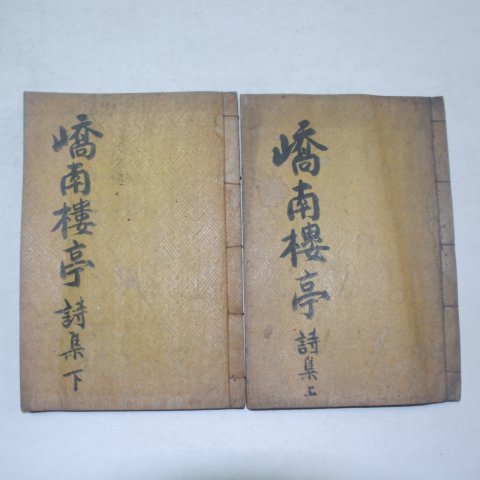 嶠南樓亭 詩集 上
嶠南樓亭 詩集 下